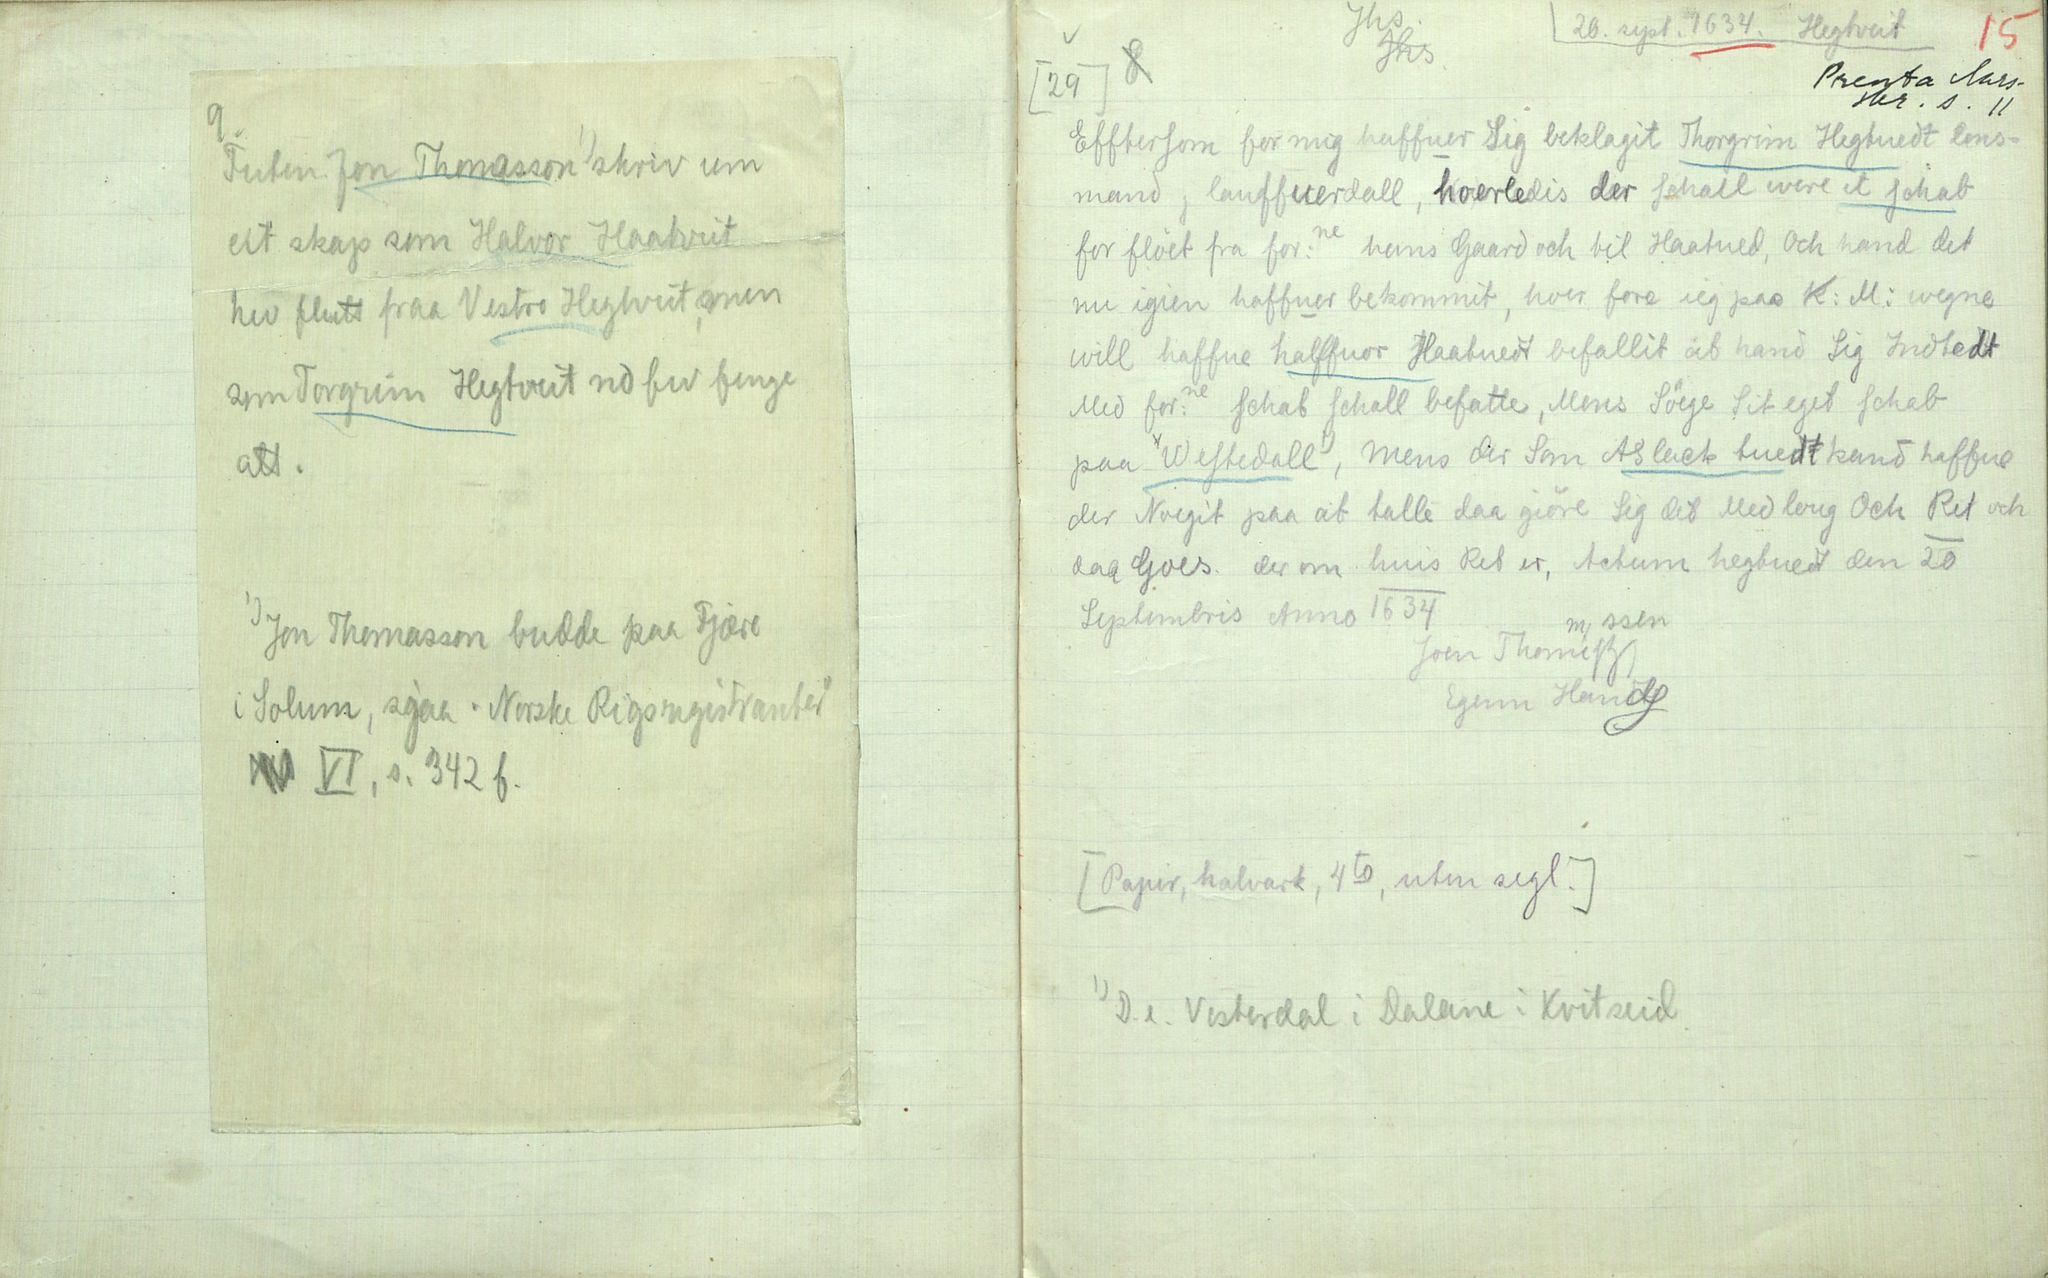 9
Futen Jon Thomasson 1) skriv um
eit skap som Halvor Haatveit
hev flutt fraa Vestre Hegtveit, men
som Torgrim Hegtveit no hev fenge
att.
1) Jon Thomasson budde paa Fjære
i Solum, sjaa "Norske Rigsregistranter"
VI, s. 342 f.
Jhs.
Jhs.
20. sept. 1634. Hegtveit
15
[29]
Prenta Aars-
skr. s. 11
Effterſom for mig haffuer Sig beklagit Thorgrim Hegtuedt lens-
mand j lauffuerdall, hoerledis der ſchall were it ſchab
for flöet fra for:ne hans Gaard och til Haatued, Och hand det
nu igien haffuer bekommit, huor fore ieg paa K: M: wegne
will haffue halffuor Haatuedt befallit at hand Sig Indtedt
Med for:ne ſchab ſchall befatte, Mens Söge Sit eget ſchab
paa Weſtedall 1), Mens der Som Aslack tuedt kand haffue
der Noegit paa at talle daa giöre Sig det Med loug Och Ret och
daa Goes der om huis Ret er, Actum hegtuedt den 20
Septembris Anno 1634
mssen
Joen Thomeſz
Egenn Handt
[Papir, halvark, 4to, uten segl.]
1) D. e. Vesterdal i Dalane i Kvitseid